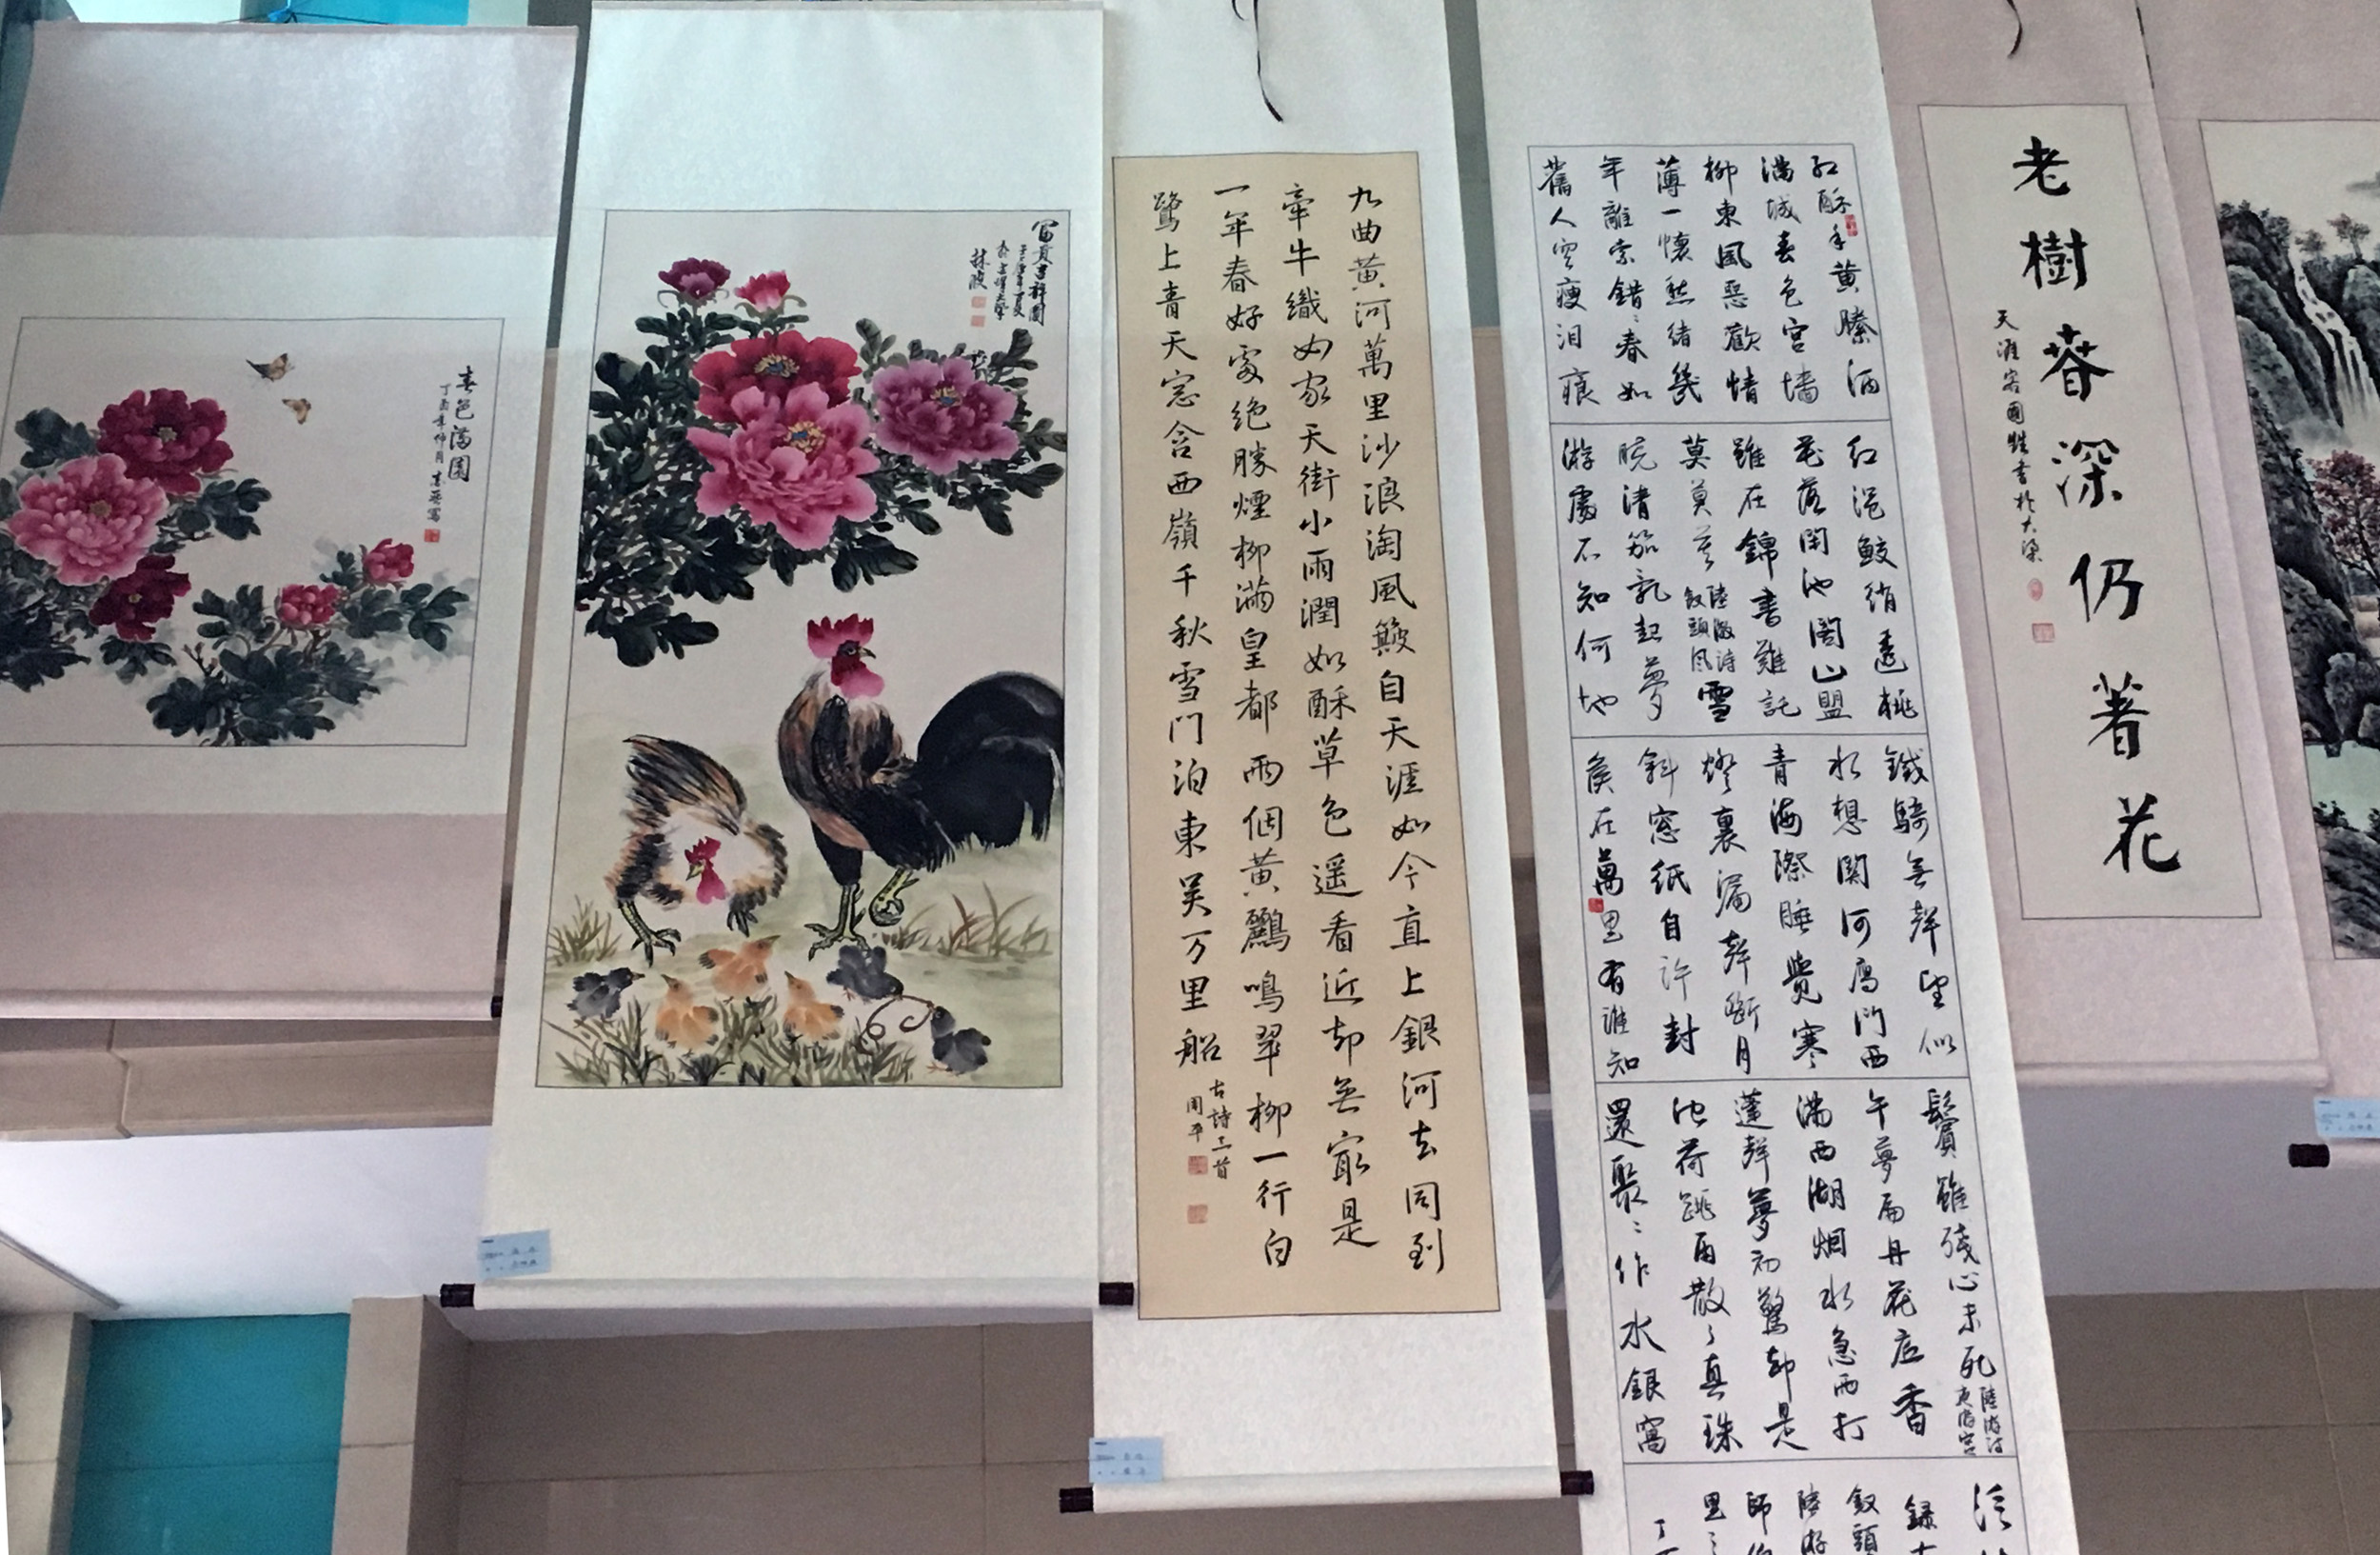 春色满園
丁酉年仲月
富貴吉祥圖
丁酉年夏
林波
九曲黄河萬里沙浪淘風簸自天涯如今直上銀河去同到
牽牛織女家天街小雨潤如酥草色遥看近却无最是
一年春好處绝勝煙柳滿皇都兩個黄鸝鳴翠柳一行白
鷺上青天窓含西嶺千秋雪门泊東吴万里船
古詩三首
周平
红酥手黄縢酒
满城春色宫墙
柳東風惡歡情
薄一懷愁绪幾
年離索錯ミ春如
舊人空瘦泪痕
红浥鲛绡透桃
花落閑池阁山盟
雖在錦書難託
莫莫莫陸游诗釵頭凤雪
晓清笳乱起夢
游處不知何地
鐵騎无聲望似
水想関河鴈门西
青海際睡觉寒
燈裏漏聲断月
斜窓纸自许封
侯在萬里有谁知
鬢雖残心未死陸游词夜游宫
午夢扁舟花底香
满西湖烟水急雨打
蓬聲夢初驚却是
池荷跳雨散了真珠
還聚ミ作水銀窩
録
釵頭
陸游
師
里
老樹春深仍著花
天涯客國
書於大梁